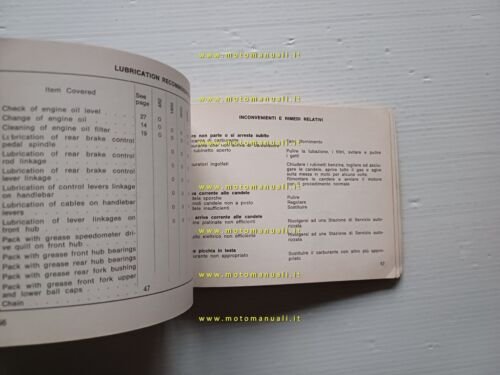 www.motomanuali.it
LUBRICATION
Item Covered
See
page
Check of engine oil level
27
0
Change of engine oil
14
0
Cleaning of engine oil filter
15
0
Lubrication of rear brake control
pedal spindle
Lubrication of rear brake control
rod linkage
Lubrication of rear brake control
lever linkage
Lubrication of control levers linkage
on handlebar
Lubrication of cables on handlebar
levers
Lubrication of lever linkages on
front hub
Pack with grease speedometer dri-
ve quill on front hub
Pack with grease front hub bearings
Pack with grease rear hub bearings
Pack with grease rear fork bushing
Pack with grease front fork upper
and lower ball caps
47
Chain
INCONVENIENTI E RIMEDI RELATIVI
non parte o si arresta subito
di carburante
Fare rifornimento
rubinetto aperto
Pulire la tubazione, i filtri, svitare e pulire
i getti
ingolfati
Chiudere i rubinetti benzina, togliere ed asciu-
gare le candele, aprire tutto il gas e agire
sulla messa in moto per alcune volte.
Rimontare le candele e avviare il motore
con il procedimento normale
www.motomanuali.it
corrente alle candele
candele sporche
Pulire
candele non a posto
Regolare
candele insufficienti
Sostituire
arriva corrente alle candele
platinate non efficienti
Rivolgersi ad una Stazione di Servizio auto-
rizzata
elettrico non efficienti
Rivolgersi ad una Stazione di Servizio auto-
rizzata
picchia in testa
non appropriato
Sostituire il carburante con altro più appro-
priato
57
www.motomanuali.it